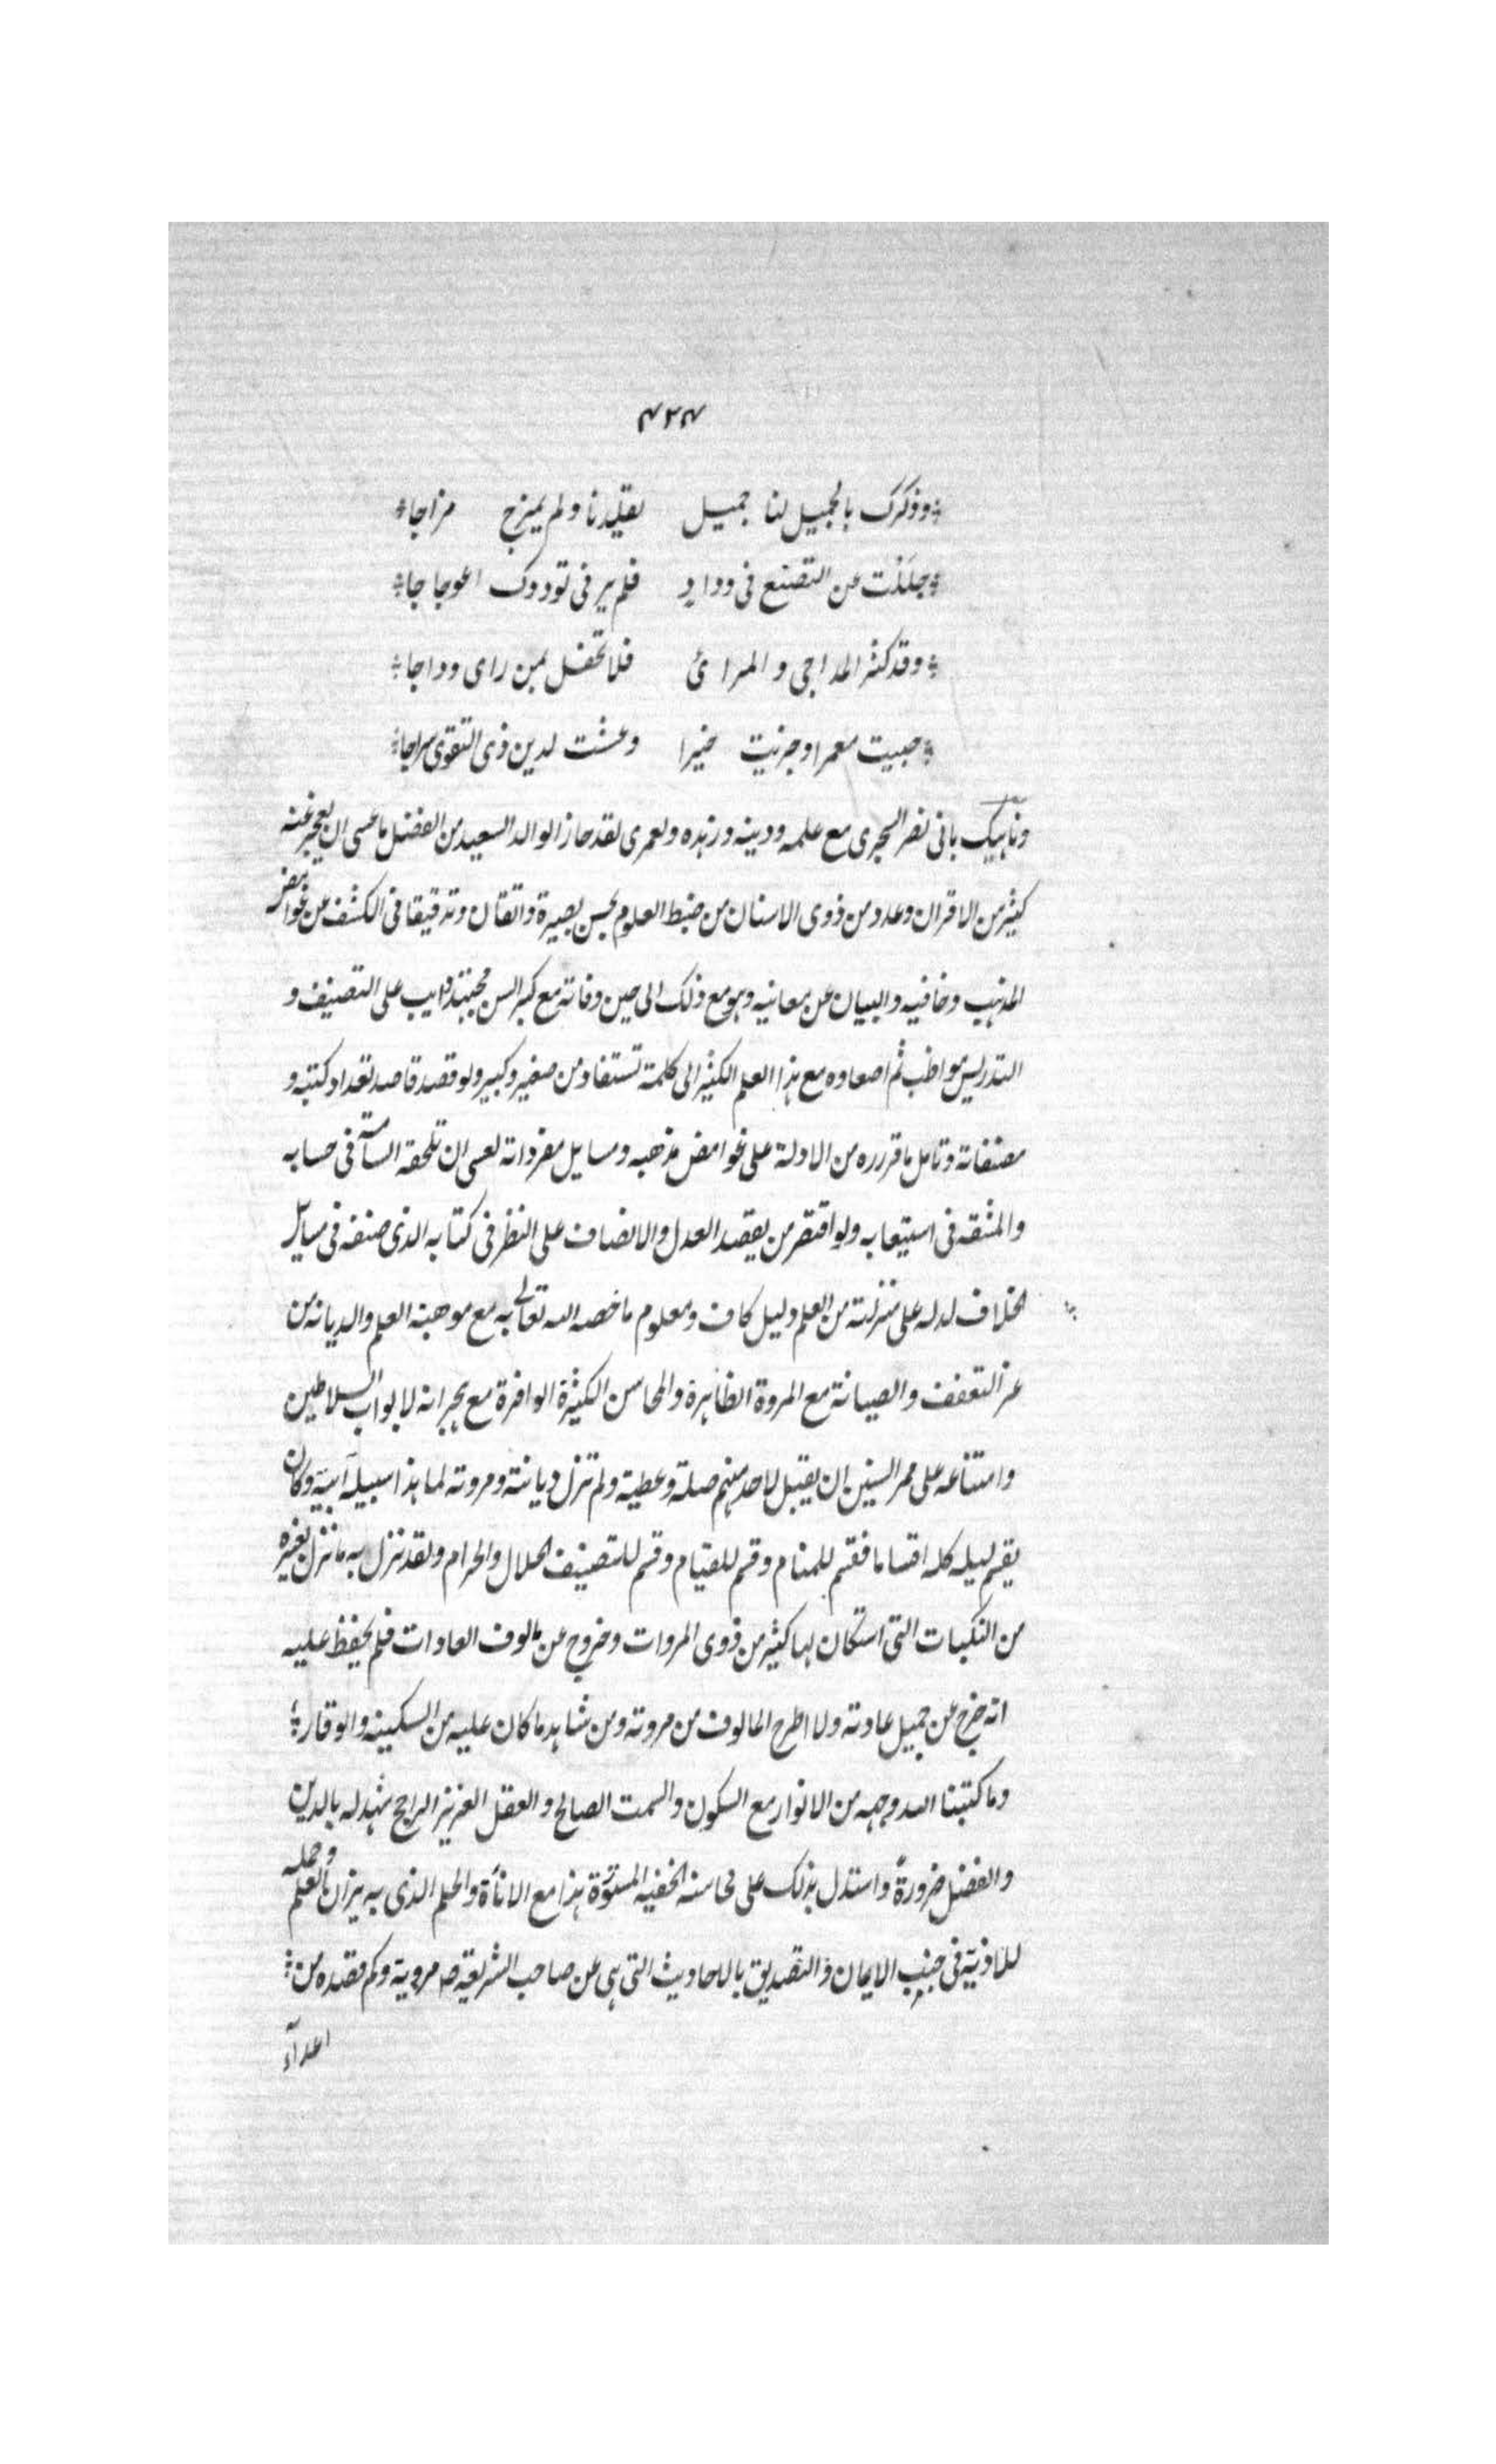 ٤٢٤
وذكرك بالجميل لنا جميل يقلدنا ولم يمزج مزاجا
جللت عن التصنع فى وداد فلم ير فى توددك اعوجاجا
وقد كثر المداجى والمرائ فلا تحفل بمن راى وداجا
حبيت معمرا وجزيت خيرا وعشت لدين ذى التقوى سراجا
وناهيك بابى نصر السجزى مع علمه ودينه وزهده ولعمرى لقد حاز الوالد السعيد من الفضل ما عسى ان يعجز عنه
كثير من الاقران وعدد من ذوى الاسنان من ضبط العلوم بحسن بصيرة واتقان وتدقيقا فى الكشف عن غوامض
المذهب وخافيه والبيان عن معانيه وهو مع ذلك الى حين وفاته مع كبر السن مجتهد دايب على التصنيف و
التدريس مواظب ثم اصعاده مع هذا العلم الكثير الى كلمة تستفاد من صغير وكبير ولو قصد قاصد تعداد كتبه و
مصنفاته وتامل ما قرره من الادلة على غوامض مذهبه ومسايل مفرداته لعسى ان تلحقه السآمة فى حسابه
والمشقه فى استيعابه ولو اقتصر من يقصد العدل والانصاف على النظر فى كتابه الذى صنفه فى مسايل
الخلاف لدله على منزلته من العلم دليل كاف ومعلوم ما خصه الله تعالى به مع موهبة العلم والديانه من
عز التعفف والصيانة مع المروة الظاهرة والمحاسن الكثيرة الوافرة مع هجرانه لابواب السلاطين
وامتناعه على ممر السنين ان يقبل لاحد منهم صلة وعطية ولم تزل ديانته ومروته لما هذا سبيله آبية وكان
يقسم ليله كله اقساما فقسم للمنام وقسم للقيام وقسم لتصنيف الحلال والحرام ولقد نزل به ما نزل بغيره
من النكبات التى استكان لها كثير من ذوى المروات وخروج عن مالوف العادات فلم يحفظ عليه
انه خرج عن جميل عادته ولا اطرح المالوف من مروته ومن شاهد ما كان عليه من السكينه والوقار
وما كتبنا الله وجهه من الانوار مع السكون والسمت الصالح والعقل الغزيز الراجح شهد له بالدين
والفضل ضرورةً واستدل بذلك على محاسنه الخفيه المستورة هذا مع الاناة والحلم الذى به يزان العلم وحمله
للاذية فى جنب الايمان والتصديق بالاحاديث التى هى عن صاحب الشريعة ص مروية وكم قصده من
اعدآء